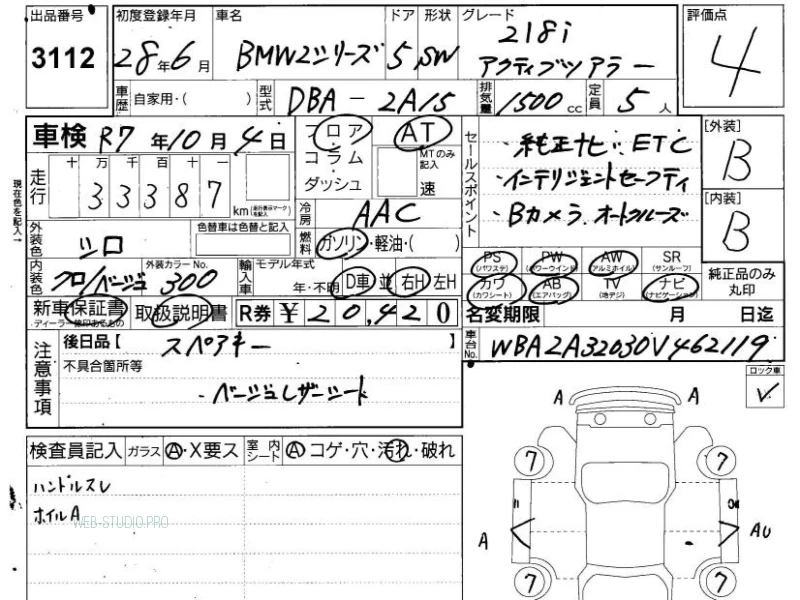 出品番号 初度登録年月 車名 ドア 形状 グレード 評価点
3112 28年6月 BMW2シリーズ 5 SW 218i 4
アクティブツアラー
車歴 自家用・( ) 型式 DBA-2A15 排気量 1500cc 定員 5人
車検 R7年10月4日 フロア AT
コラム MTのみ記入
ダッシュ 速
走行 十 万 千 百 十 一
33387 km
現在色を記入→
セールスポイント ・純正ナビ、ETC
・インテリジェントセーフティ
・Bカメラ、オートクルーズ
[外装]
B
[内装]
B
冷房 AAC
外装色 シロ 色替車は色替と記入 燃料 ガソリン・軽油・( )
内装色 クロ/ベージュ 外装カラーNo. 300 輸入車 モデル年式 年・不明 D車 並 右H 左H
PS (パワステ) PW (パワーウインド) AW (アルミホイル) SR (サンルーフ) 純正品のみ
カワ (カワシート) AB (エアバッグ) TV (地デジ) ナビ (ナビゲーション) 丸印
新車保証書 取扱説明書 R券 ¥20,420 名変期限 月 日迄
ディーラー捺印あるもの
注意事項 後日品【 スペアキー 】 車台No. WBA2A32030V462119
不具合箇所等
・ベージュレザーシート
ロック車
検査員記入 ガラス A・X要ス 室内シート A コゲ・穴・汚れ・破れ
ハンドルスレ
ホイルA
WEB-STUDIO.PRO
A A
7 7
A AU
7 7